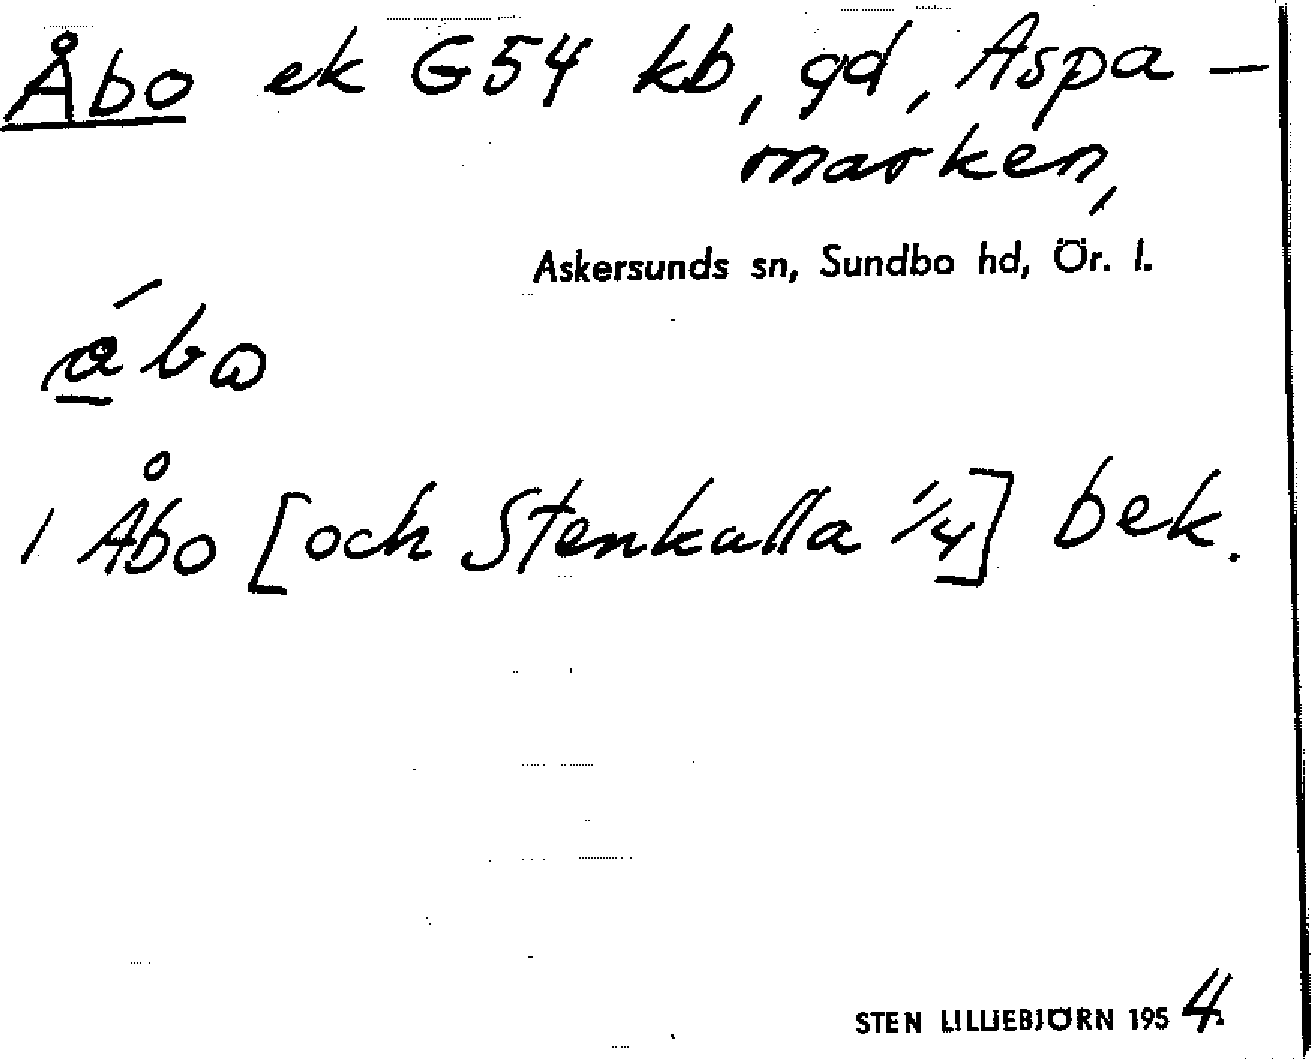 Åbo ek G54 kb, gd, Aspa-
marken,
Askersunds sn, Sundbo hd, Ör. l.
ǻbω
1 Åbo [och Stenkalla 1/4] bek.
STEN LILLIEBJÖRN 1954